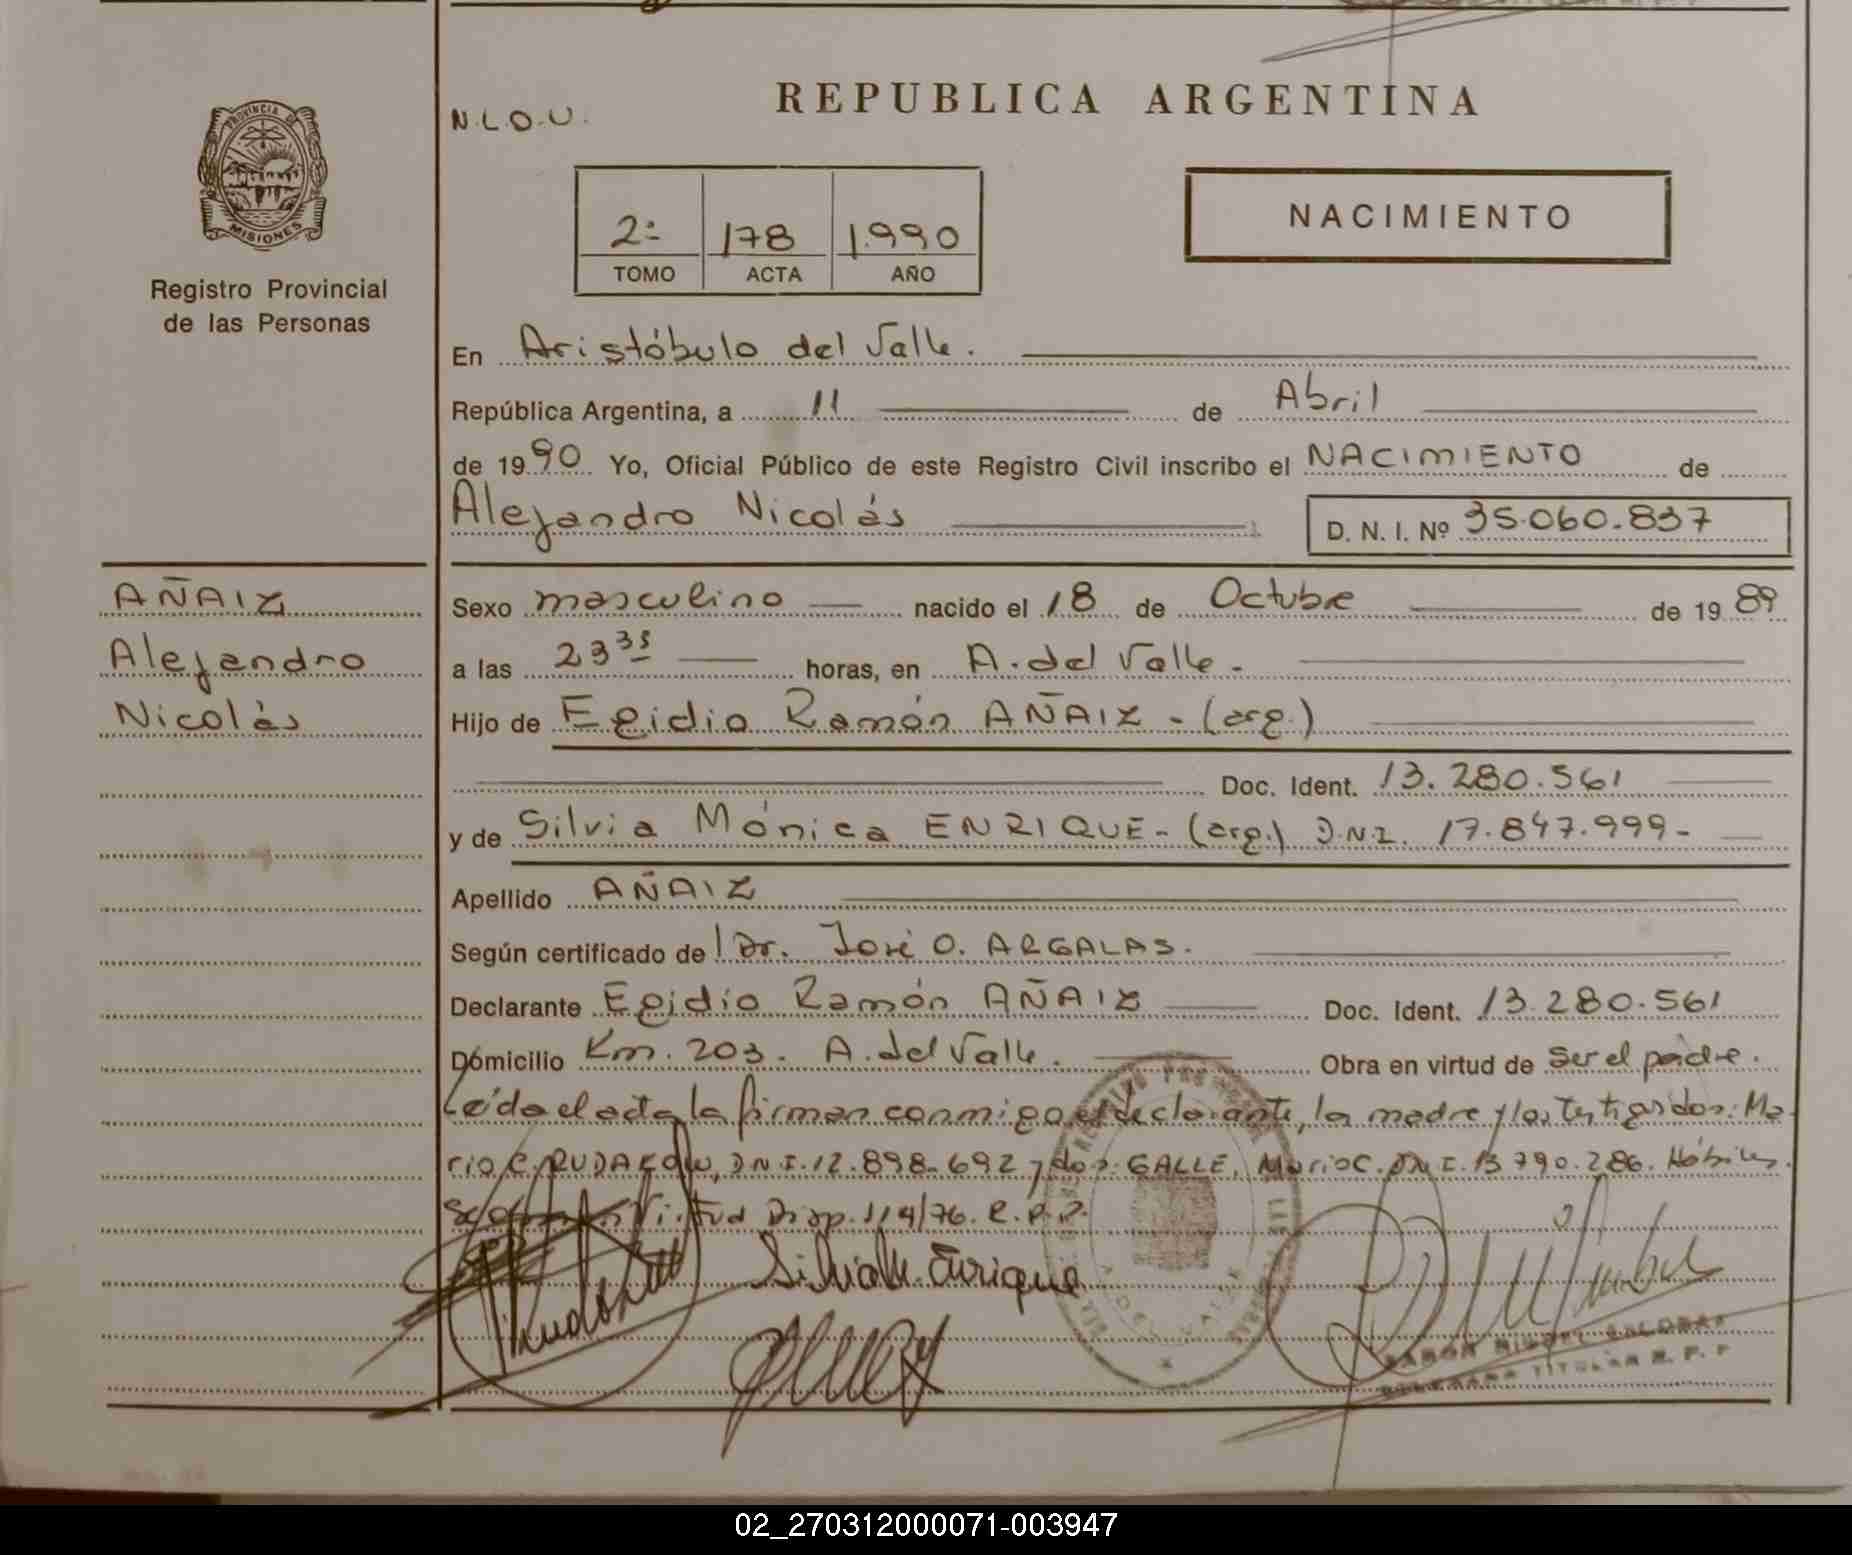 REPUBLICA ARGENTINA
N.L.O.U.
PROVINCIA DE
MISIONES
Registro Provincial
de las Personas
2º 178 1.990
TOMO ACTA AÑO
NACIMIENTO
En Aristóbulo del Valle.
República Argentina, a 11 de Abril
de 1990 Yo, Oficial Público de este Registro Civil inscribo el NACIMIENTO de
Alejandro Nicolás D. N. I. Nº 35.060.837
AÑAIZ
Alejandro
Nicolás
Sexo masculino nacido el 18 de Octubre de 1989
a las 23 35 horas, en A. del Valle.-
Hijo de Egidio Ramón AÑAIZ - (arg.)
Doc. Ident. 13.280.561
y de Silvia Mónica ENRIQUE - (arg.) D.N.I. 17.847.999-
Apellido AÑAIZ
Según certificado de Dr. José O. ARGALAS.
Declarante Egidio Ramón AÑAIZ Doc. Ident. 13.280.561
Domicilio Km. 203. A. del Valle. Obra en virtud de ser el padre.
Leída el acta la firman conmigo el declarante, la madre y los testigos don: Ma-
rio C. RUDAKOW, DNI. 12.898.692 y don: GALLE, Mario C. DNI. 13.790.286. Hábiles.
Virtud Disp. 114/76. R.P.P.
Silvia M. Enrique
RAMON MIGUEL ESCOBAR
TITULAR R. P. P
02_270312000071-003947